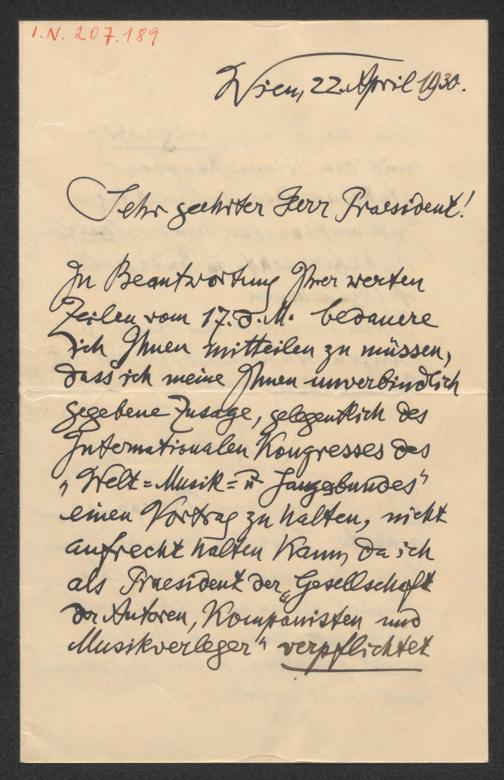 I.N. 207.189
Wien, 22. April 1930.
Sehr geehrter Herr Praesident!
In Beantwortung Ihrer werten
Zeilen vom 17. d. M. bedauere
ich Ihnen mitteilen zu müssen,
dass ich meine Ihnen unverbindlich
gegebene Zusage, gelegentlich des
Internationalen Kongresses des
"Welt=Musik= u. Sangesbundes"
einen Vortrag zu halten, nicht
aufrecht halten kann, da ich
als Praesident der "Gesellschaft
der Autoren, Komponisten und
Musikverleger" verpflichtet